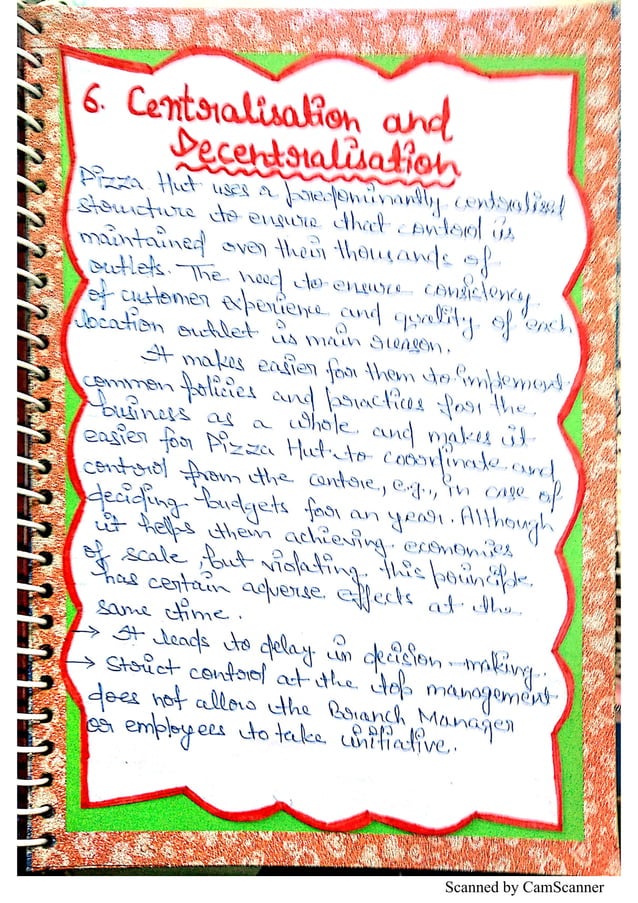 6. Centralisation and
Decentralisation
Pizza Hut uses a predominantly centralised
structure to ensure that control is
maintained over their thousands of
outlets. The need to ensure consistency
of customer experience and quality of each
location outlet is main reason.
It makes easier for them to implement
common policies and practices for the
business as a whole and makes it
easier for Pizza Hut to coordinate and
control from the centre, e.g., in case of
deciding budgets for an year. Although
it helps them achieving economies
of scale, but violating this principle
has certain adverse effects at the
same time.
→ It leads to delay in decision-making.
→ Strict control at the top management
does not allow the Branch Manager
or employees to take initiative.
Scanned by CamScanner